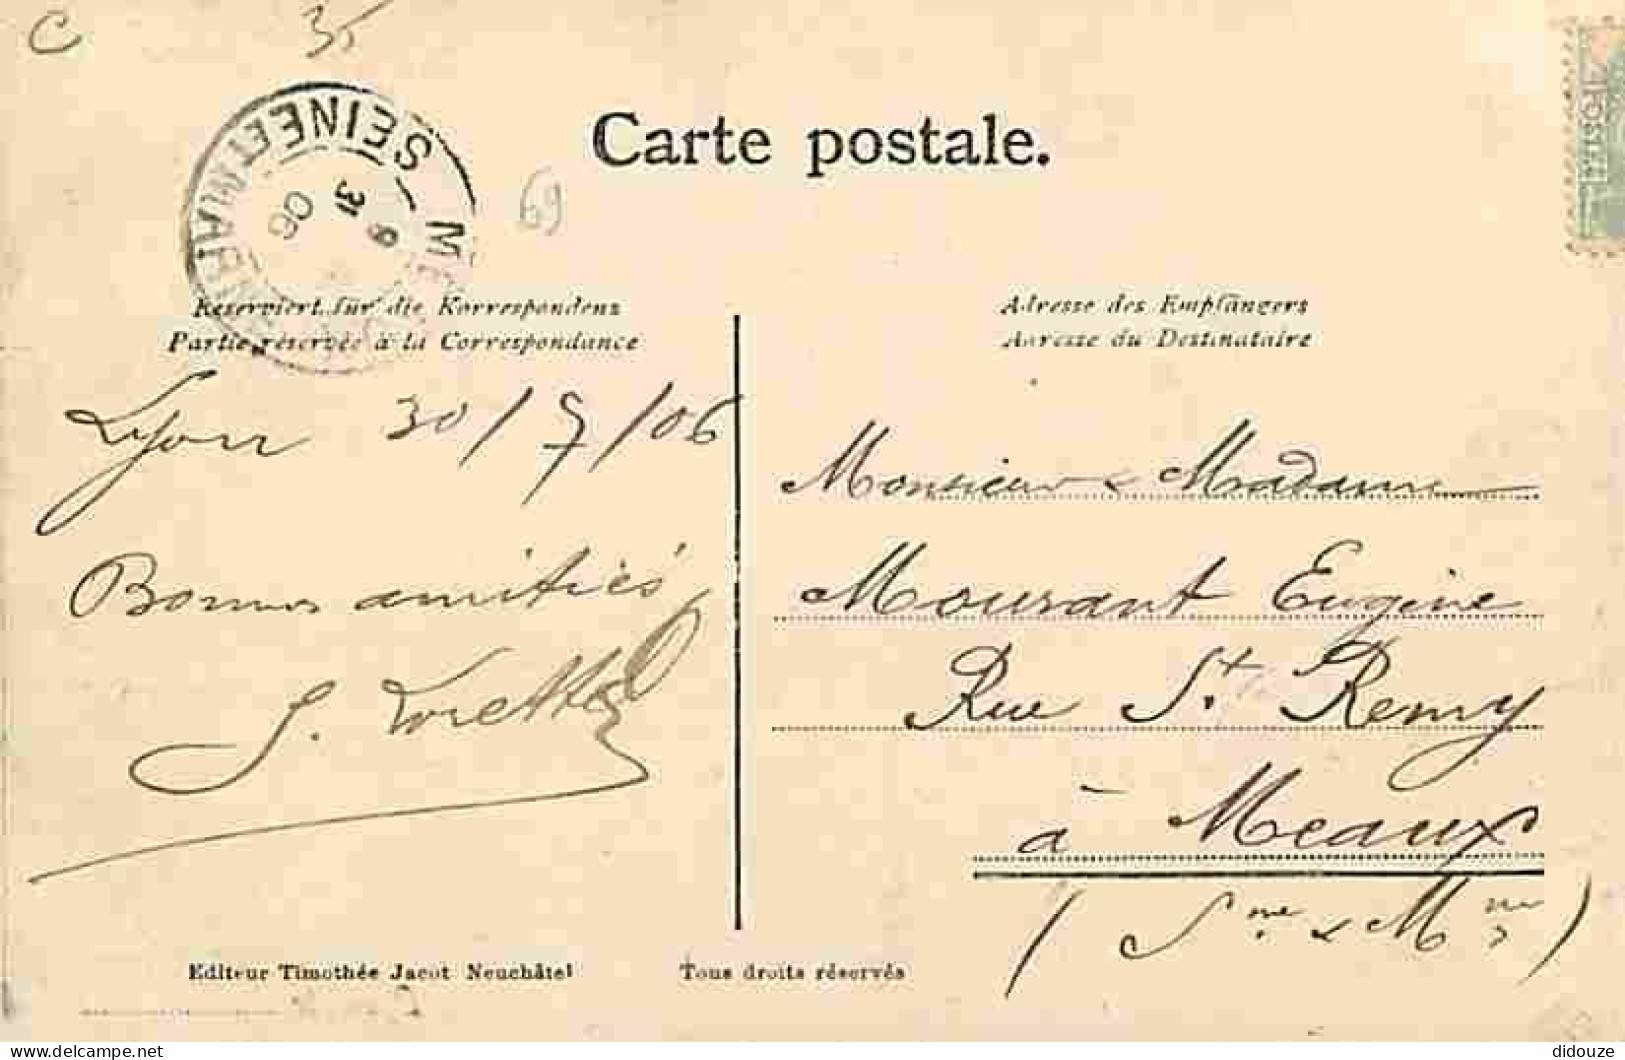 C
35
Carte postale.
SEINE ET MARNE
31 8
06
69
Reserviert für die Korrespondenz
Partie réservée à la Correspondance
Adresse des Empfängers
Adresse du Destinataire
Lyon 30/7/06
Bonnes amitiés
Monsieur & Madame
Mourant Eugène
Rue St Remy
à Meaux
(Sne & Mne)
Editeur Timothée Jacot Neuchâtel
Tous droits réservés
POSTES
www.delcampe.net
didouze